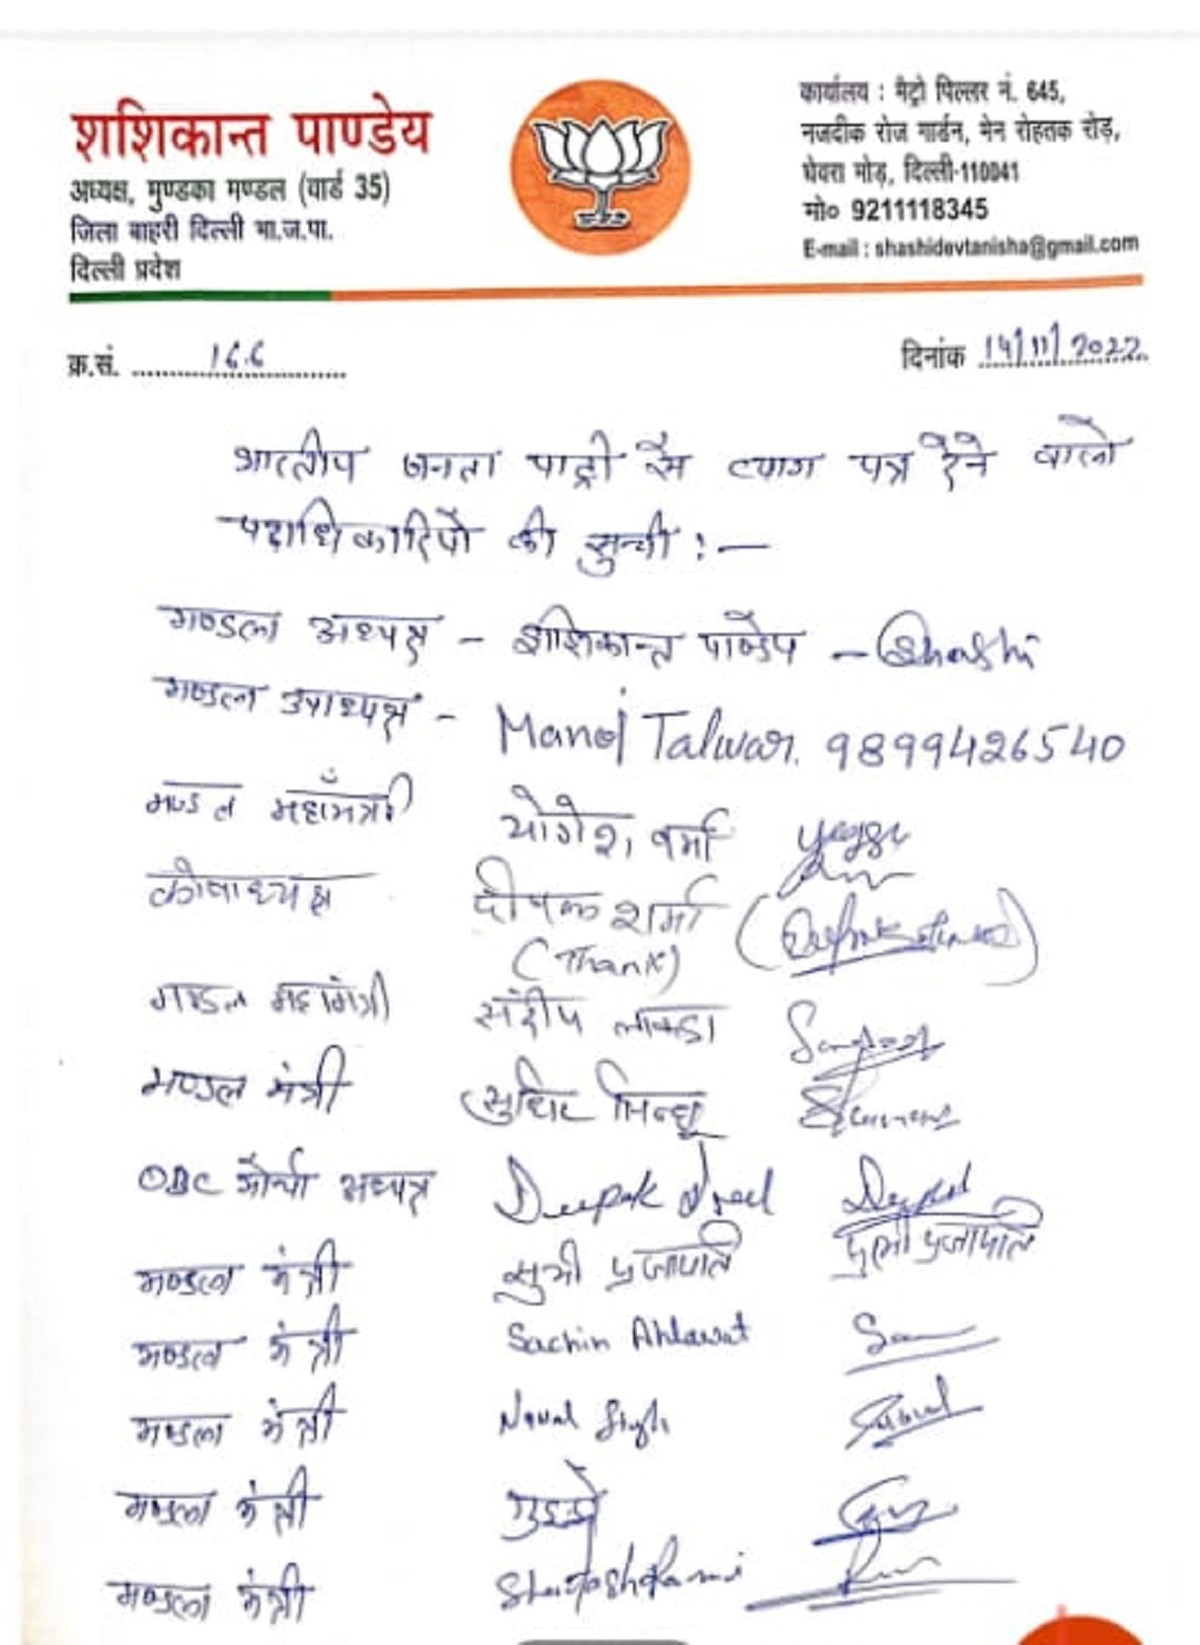 शशिकान्त पाण्डेय
अध्यक्ष, मुण्डका मण्डल (वार्ड 35)
जिला बाहरी दिल्ली भा.ज.पा.
दिल्ली प्रदेश
कार्यालय : मैट्रो पिल्लर नं. 645,
नजदीक रोज गार्डन, मेन रोहतक रोड़,
घेवरा मोड़, दिल्ली-110041
मो० 9211118345
E-mail : shashidevtanisha@gmail.com
क्र.सं. 166
दिनांक 14/11/2022
भारतीय जनता पाट्री सै त्याग पत्र देने वालो
पदाधिकारियों की सुची : —
मण्डल अध्यक्ष - शशिकान्त पाण्डेय - Shashi
मण्डल उपाध्यक्ष - Manoj Talwar. 9899426540
मण्डल महामंत्री योगेश वर्मा
कोषाध्यक्ष दीपक शर्मा
मण्डल महामंत्री संदीप लाकडा
मण्डल मंत्री सुधिर सिन्धू
OBC मोर्चा अध्यक्ष Deepak Deepak
मण्डल मंत्री प्रजापति प्रजापति
मण्डल मंत्री Sachin Ahlawat
मण्डल मंत्री Naval Singh
मण्डल मंत्री गुड्डो
मण्डल मंत्री